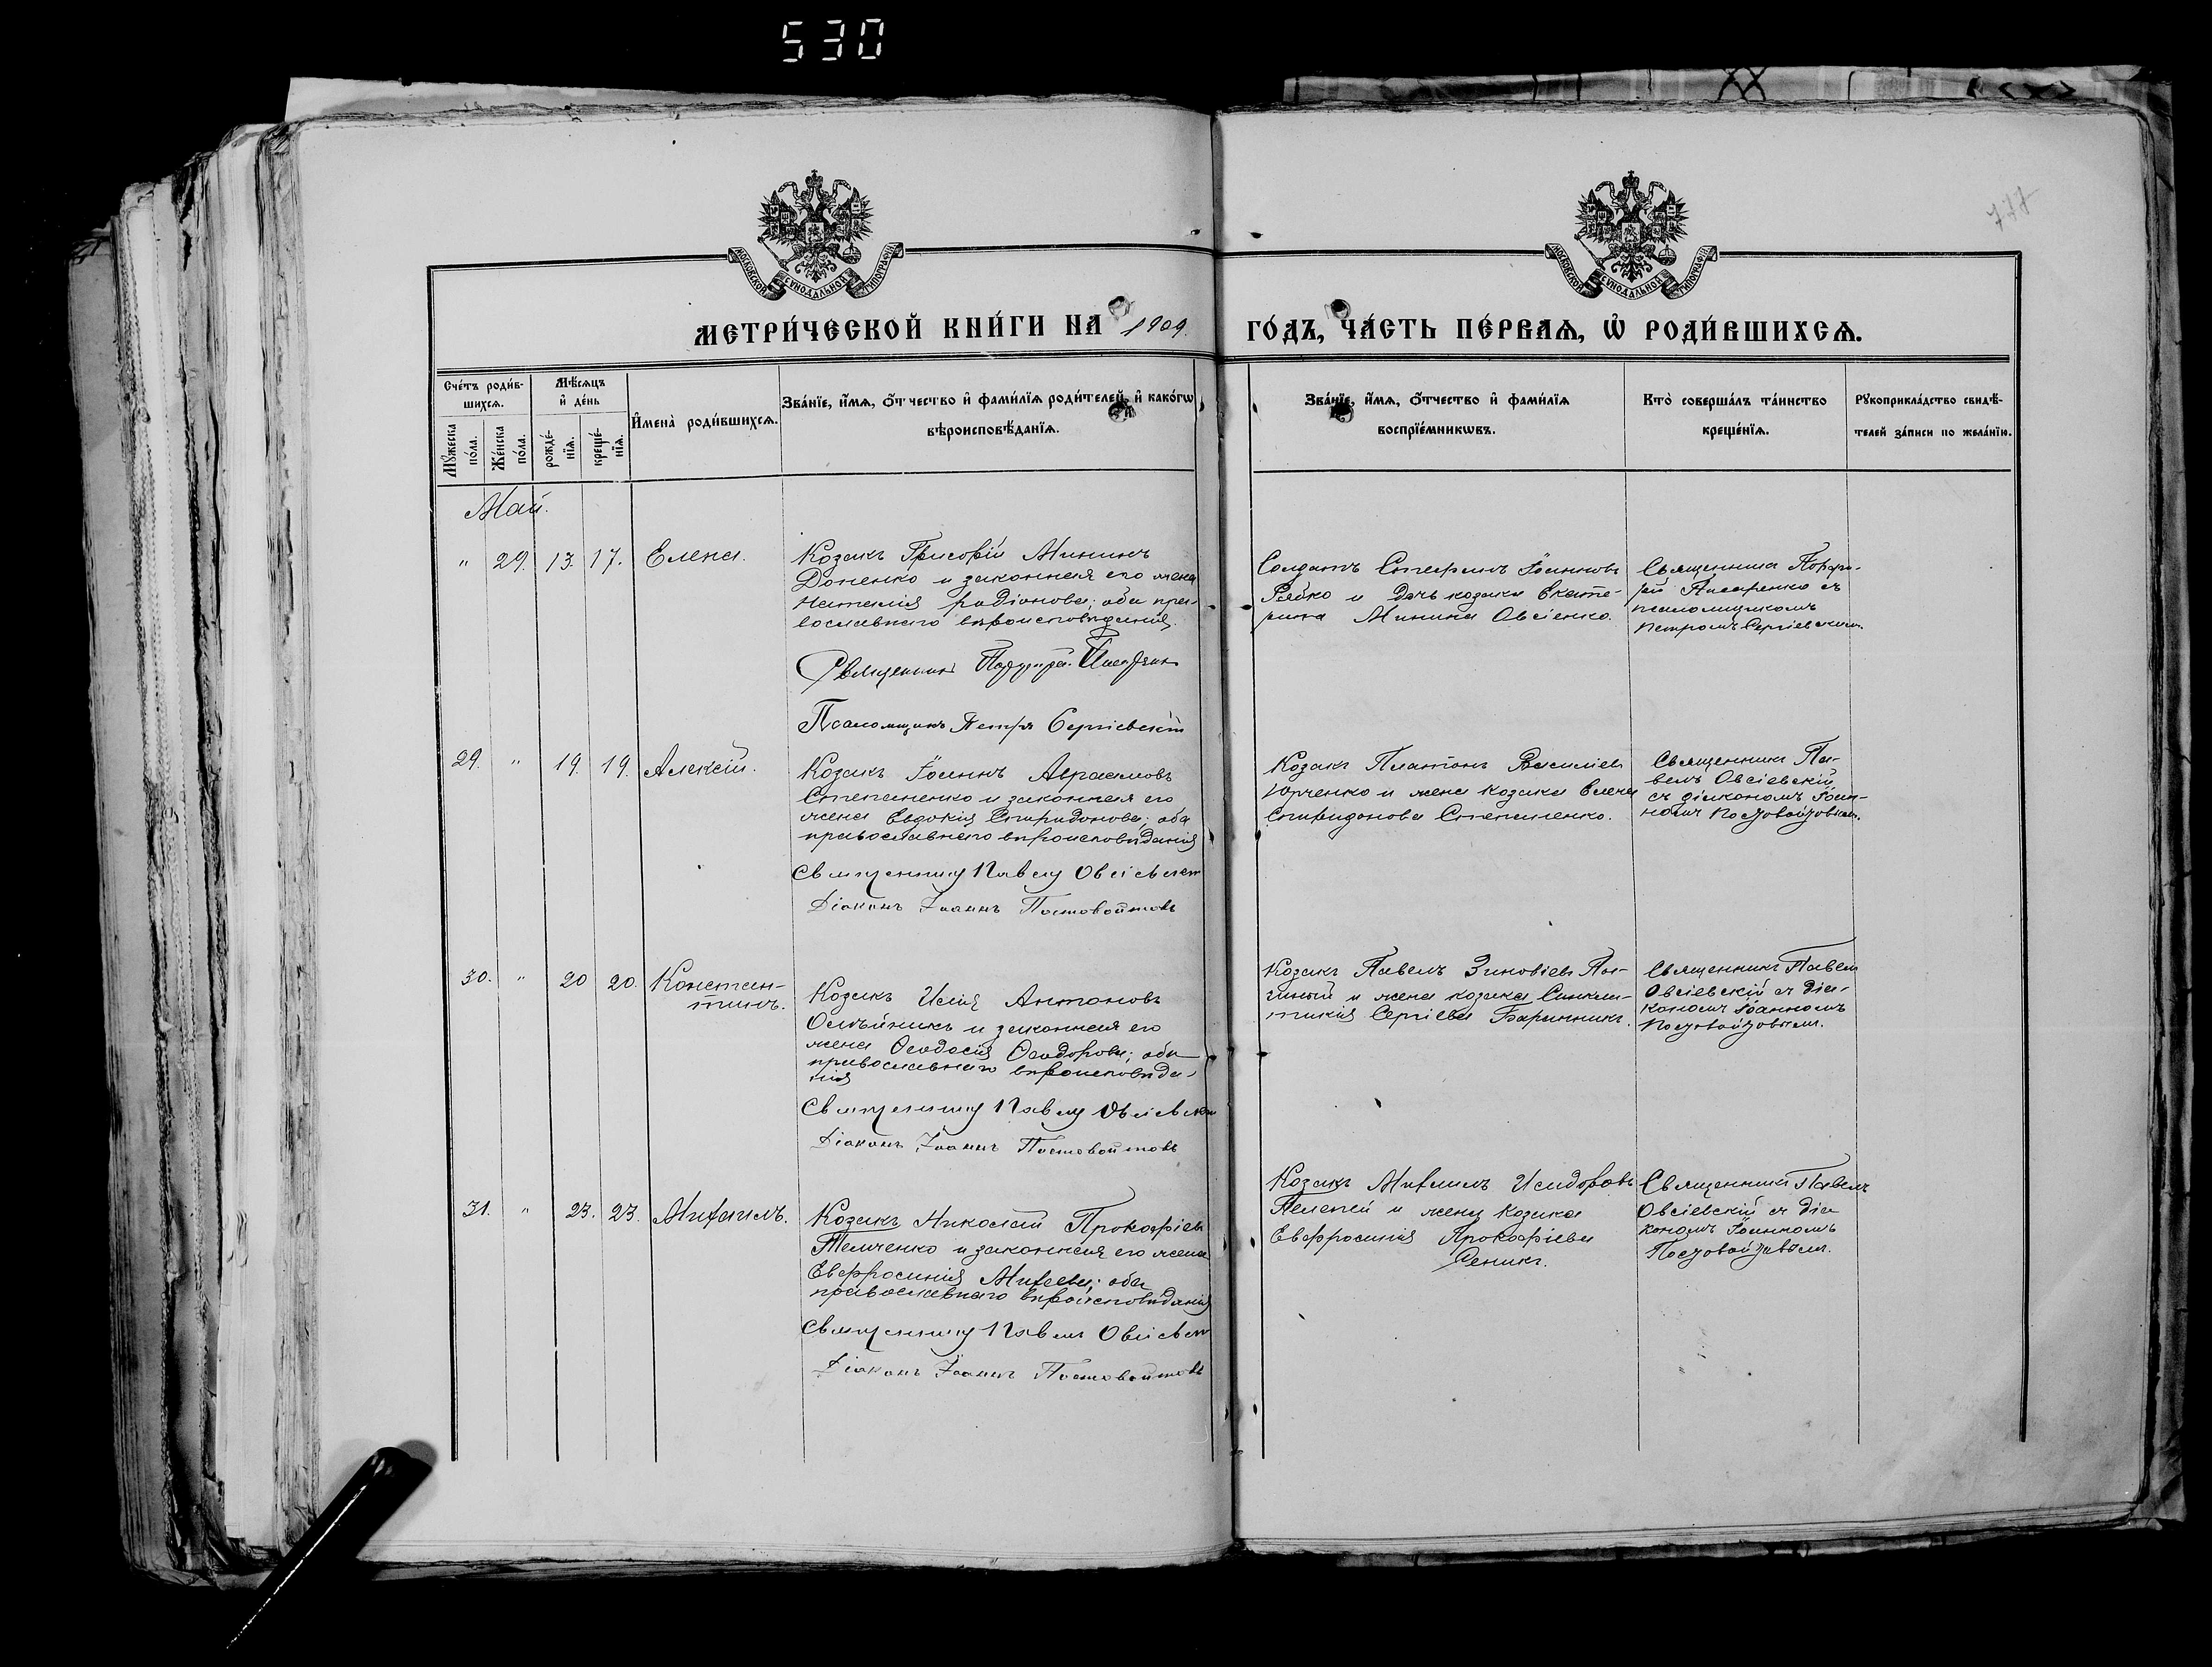 530
777
МОСКОВСКОЙ СѴНОДАЛЬНОЙ ТИПОГРАФІИ
МОСКОВСКОЙ СѴНОДАЛЬНОЙ ТИПОГРАФІИ
МЕТРИ́ЧЕСКОЙ КНИ́ГИ НА 1909. ГО́ДЪ, ЧА́СТЬ ПЕ́РВАѦ, Ѡ҆ РОДИ́ВШИХСѦ.
Сче́тъ роди́в-
шихсѧ.
Мꙋ́жеска по́ла.
Же́нска по́ла.
Мѣ́сѧцъ и҆ де́нь
рожде́-нїѧ.
креще́-нїѧ.
И҆мена̀ роди́вшихсѧ.
Зва́нїе, и҆́мѧ, ѻ҆́тчество и҆ фами́лїѧ роди́телей, и҆ како́гѡ
вѣроисповѣ́данїѧ.
Зва́нїе, и҆́мѧ, ѻ҆́тчество и҆ фами́лїѧ
воспрїе́мникѡвъ.
Кто̀ соверша́лъ та́инство
креще́нїѧ.
Рꙋкоприкла́дство свидѣ́-
телей за́писи по жела́нїю.
Май.
" 29. 13. 17. Елена.
Козакъ Григорій Мининъ
Доненко и законная его жена
Наталія Родіонова; оба пра-
вославнаго вѣроисповѣданія.
Священникъ Порфирій Писаренко
Псаломщикъ Петръ Сергіевскій
Солдатъ Стефанъ Іоанновъ
Рябко и дочь козака Екате-
рина Минина Овсіенко.
Священникъ Порфи-
рій Писаренко съ
псаломщикомъ
Петромъ Сергіевскимъ.
29. " 19. 19. Алексій.
Козакъ Іоаннъ Авраамовъ
Степаненко и законная его
жена Евдокія Спиридонова; оба
православнаго вѣроисповѣданія
Священникъ Павелъ Овсіевскій
Діаконъ Іоаннъ Постовойтовъ
Козакъ Платонъ Василіевъ
Юрченко и жена козака Елена
Спиридонова Степаненко.
Священникъ Па-
велъ Овсіевскій
съ діакономъ Іоан-
номъ Постовойтовымъ.
30. " 20 20. Констан-
тинъ.
Козакъ Исаія Антоновъ
Олѣйникъ и законная его
жена Ѳеодосія Ѳеодорова; оба
православнаго вѣроисповѣда-
нія
Священникъ Павелъ Овсіевскій
Діаконъ Іоаннъ Постовойтовъ
Козакъ Павелъ Зиновіевъ
и жена козака Синкли-
тикія Сергіева
Священникъ Павелъ
Овсіевскій съ діа-
кономъ Іоанномъ
Постовойтовымъ.
31. " 23. 23. Михаилъ.
Козакъ Николай Прокофіевъ
Темченко и законная его жена
Евфросинія Михеева; оба
православнаго вѣроисповѣданія
Священникъ Павелъ Овсіевскій
Діаконъ Іоаннъ Постовойтовъ
Козакъ Михаилъ Исидоровъ
Пелепей и жена козака
Евфросинія Прокофіева
Реникъ.
Священникъ Павелъ
Овсіевскій съ діа-
кономъ Іоанномъ
Постовойтовымъ.